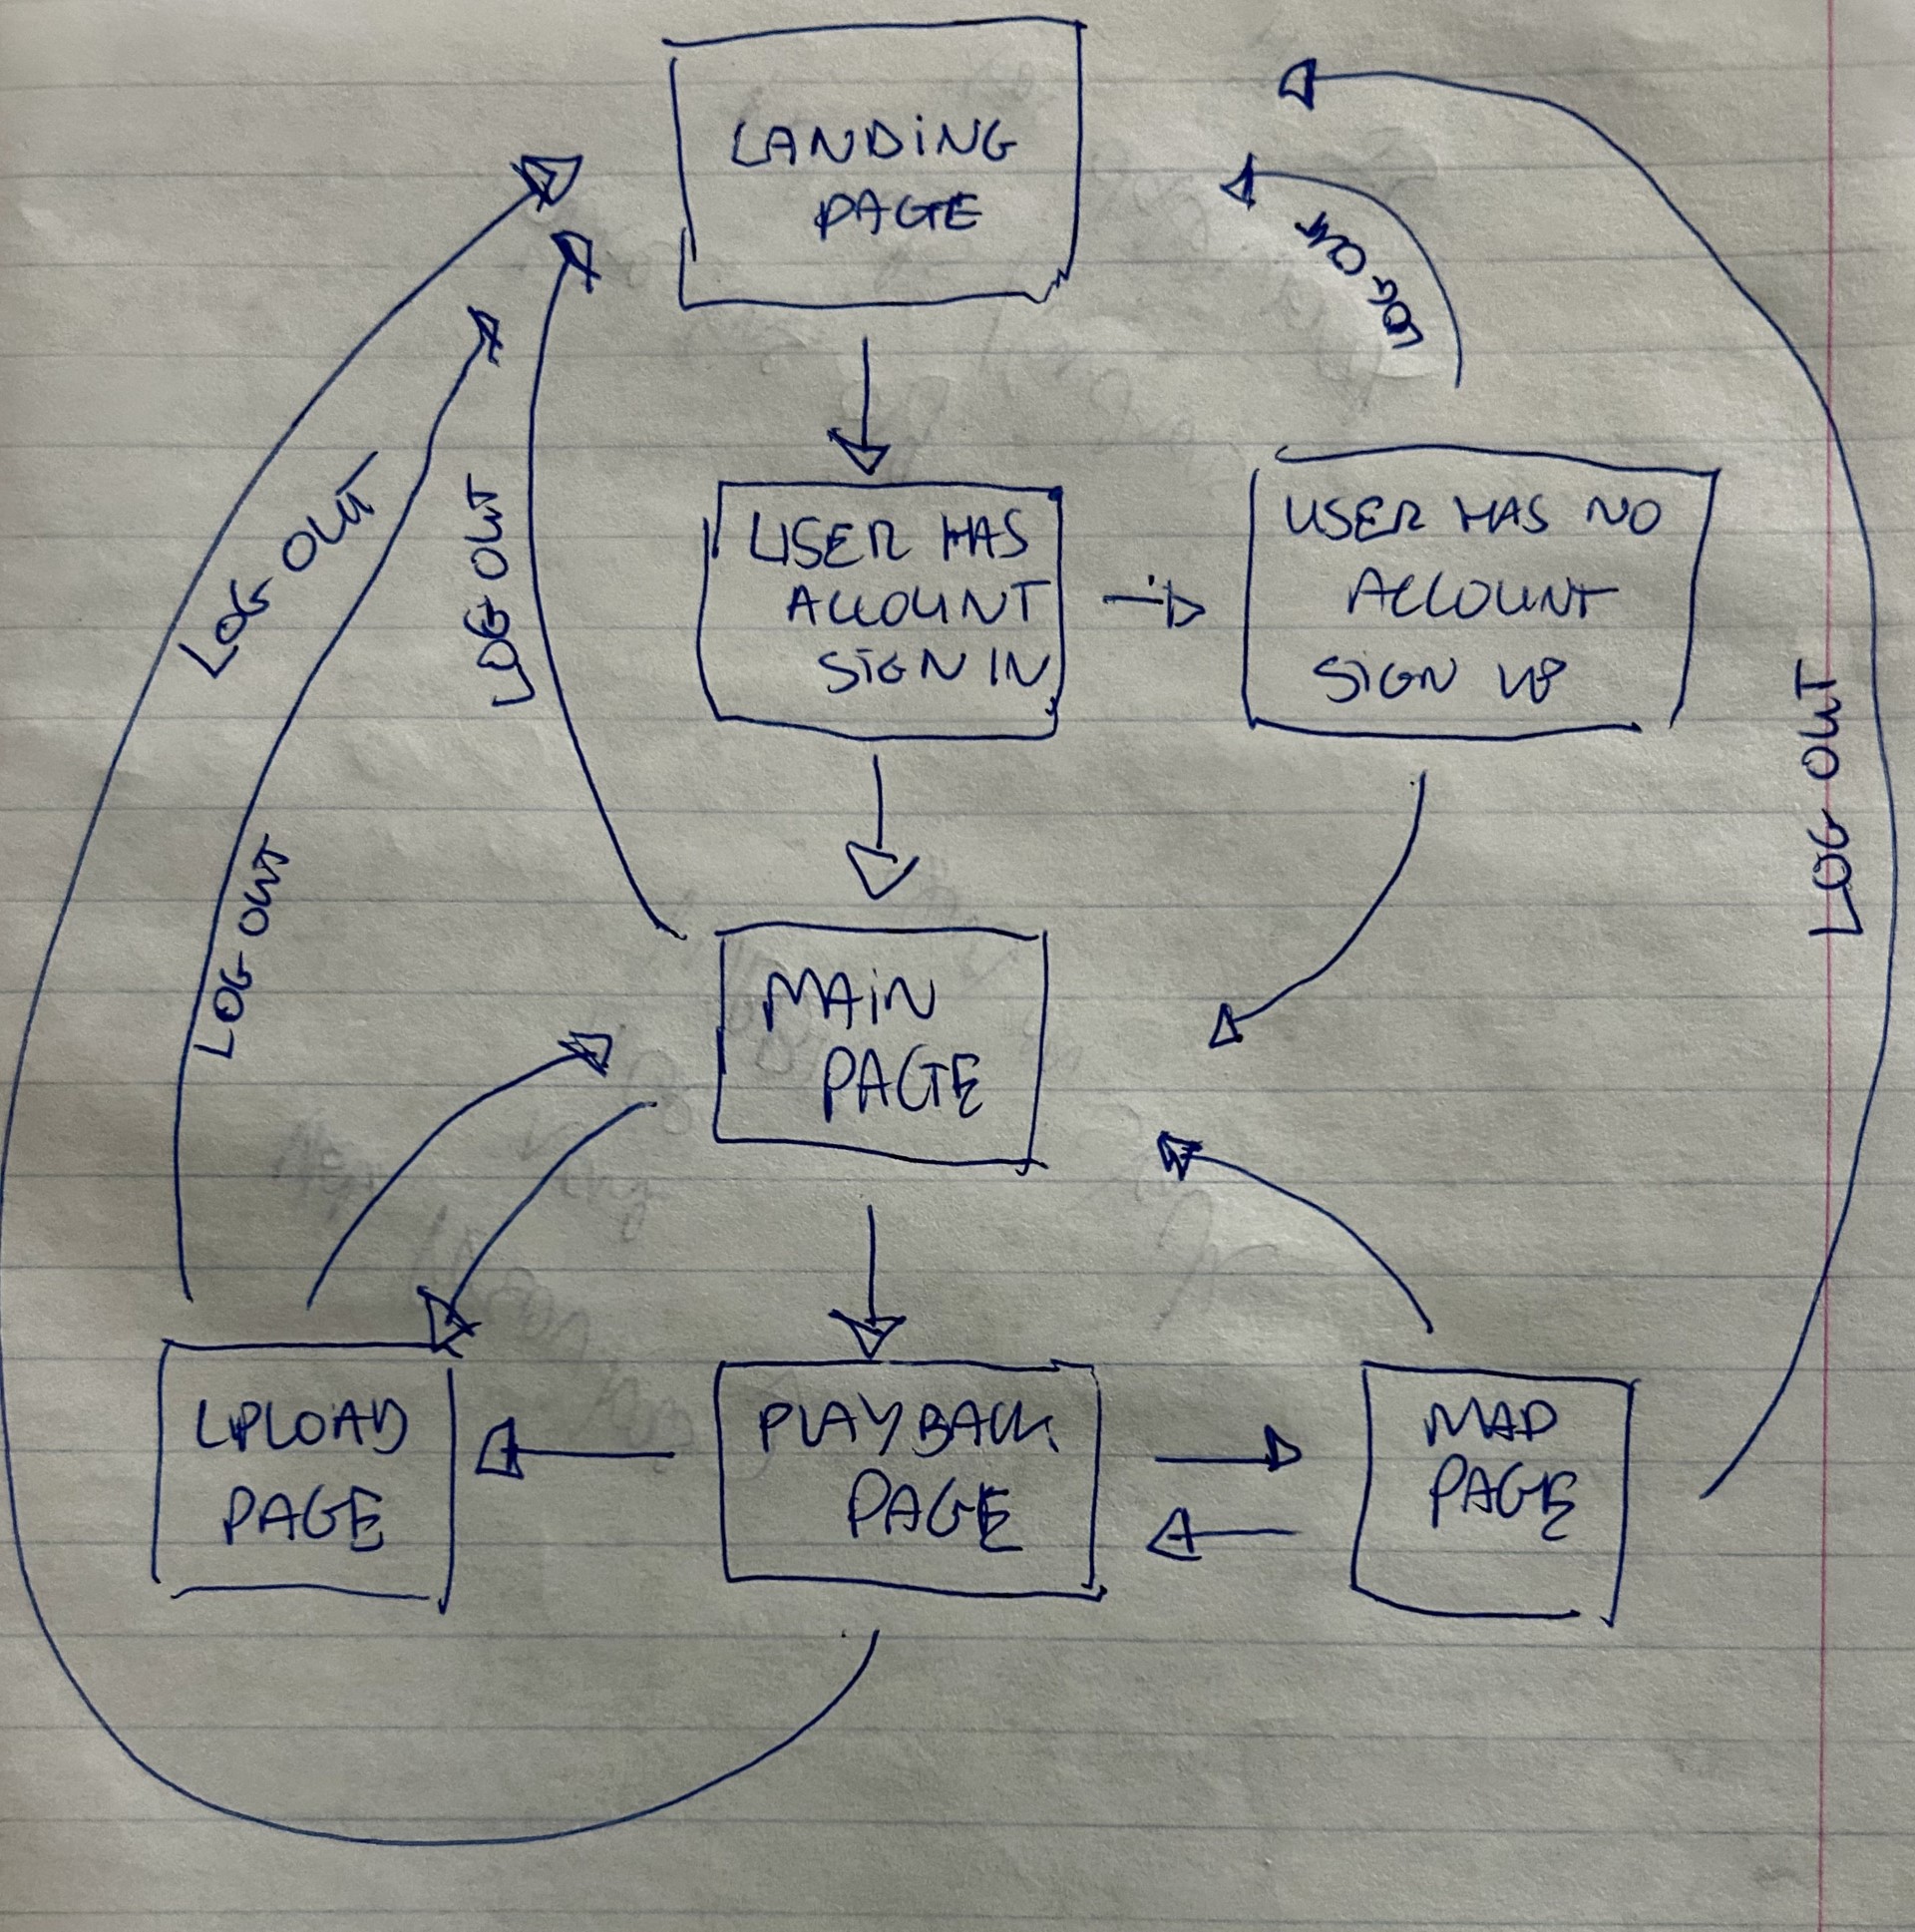 LANDING
PAGE
LOG OUT
USER HAS
ACCOUNT
SIGN IN
USER HAS NO
ACCOUNT
SIGN UP
LOG OUT
LOG OUT
LOG OUT
LOG OUT
MAIN
PAGE
UPLOAD
PAGE
PLAYBACK
PAGE
MAP
PAGE